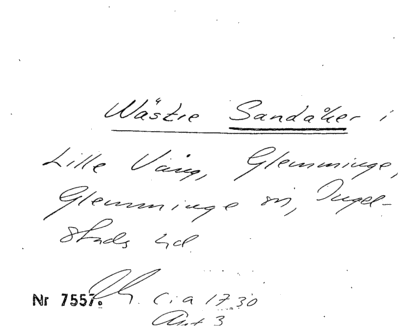 Wästie Sandåker i
Lille Vång, Glemminge,
Glemminge sn, Ingel-
stads hd
Nr 7557. c:a 1730
Akt 3